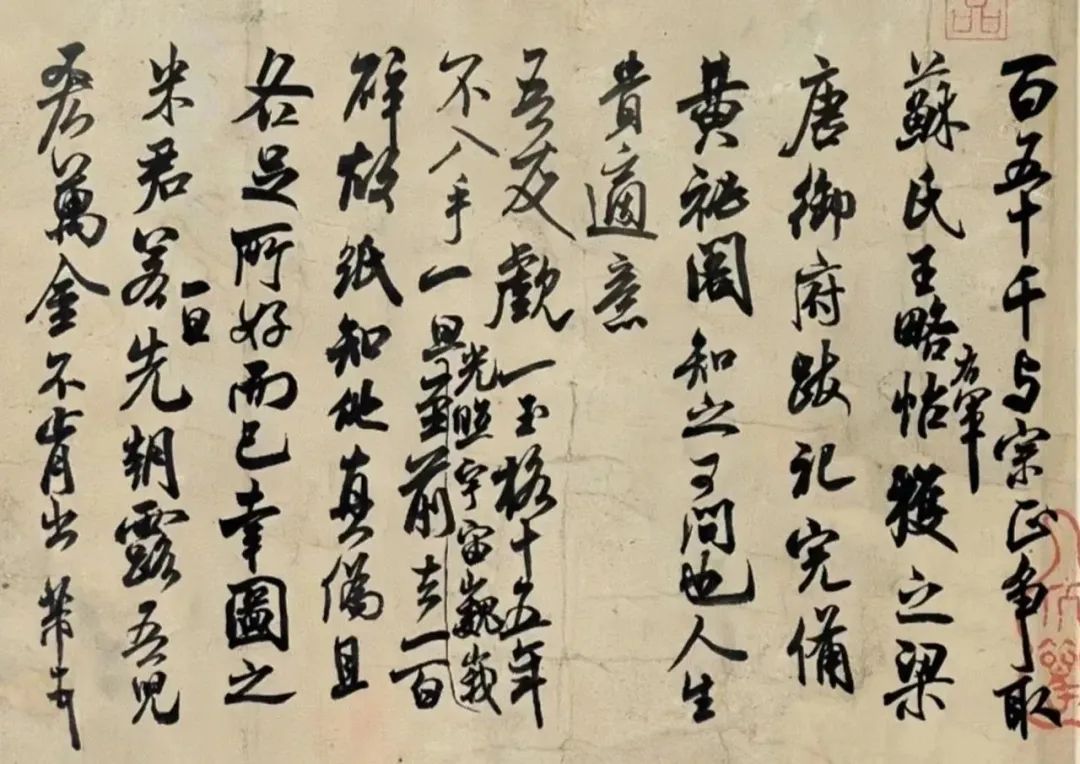 百五十千与宗正争取
蘇氏王略帖右軍獲之梁
唐御府跋記完備
黄秘閣知之可問也人生
貴適意
吾友覷一玉格十五年
不入手一旦光照宇宙巍峩至前去一百
碎故紙知他真偽且
各足所好而已幸圖之
米君若一旦先朝露吾兒
吝萬金不肯出芾頓首